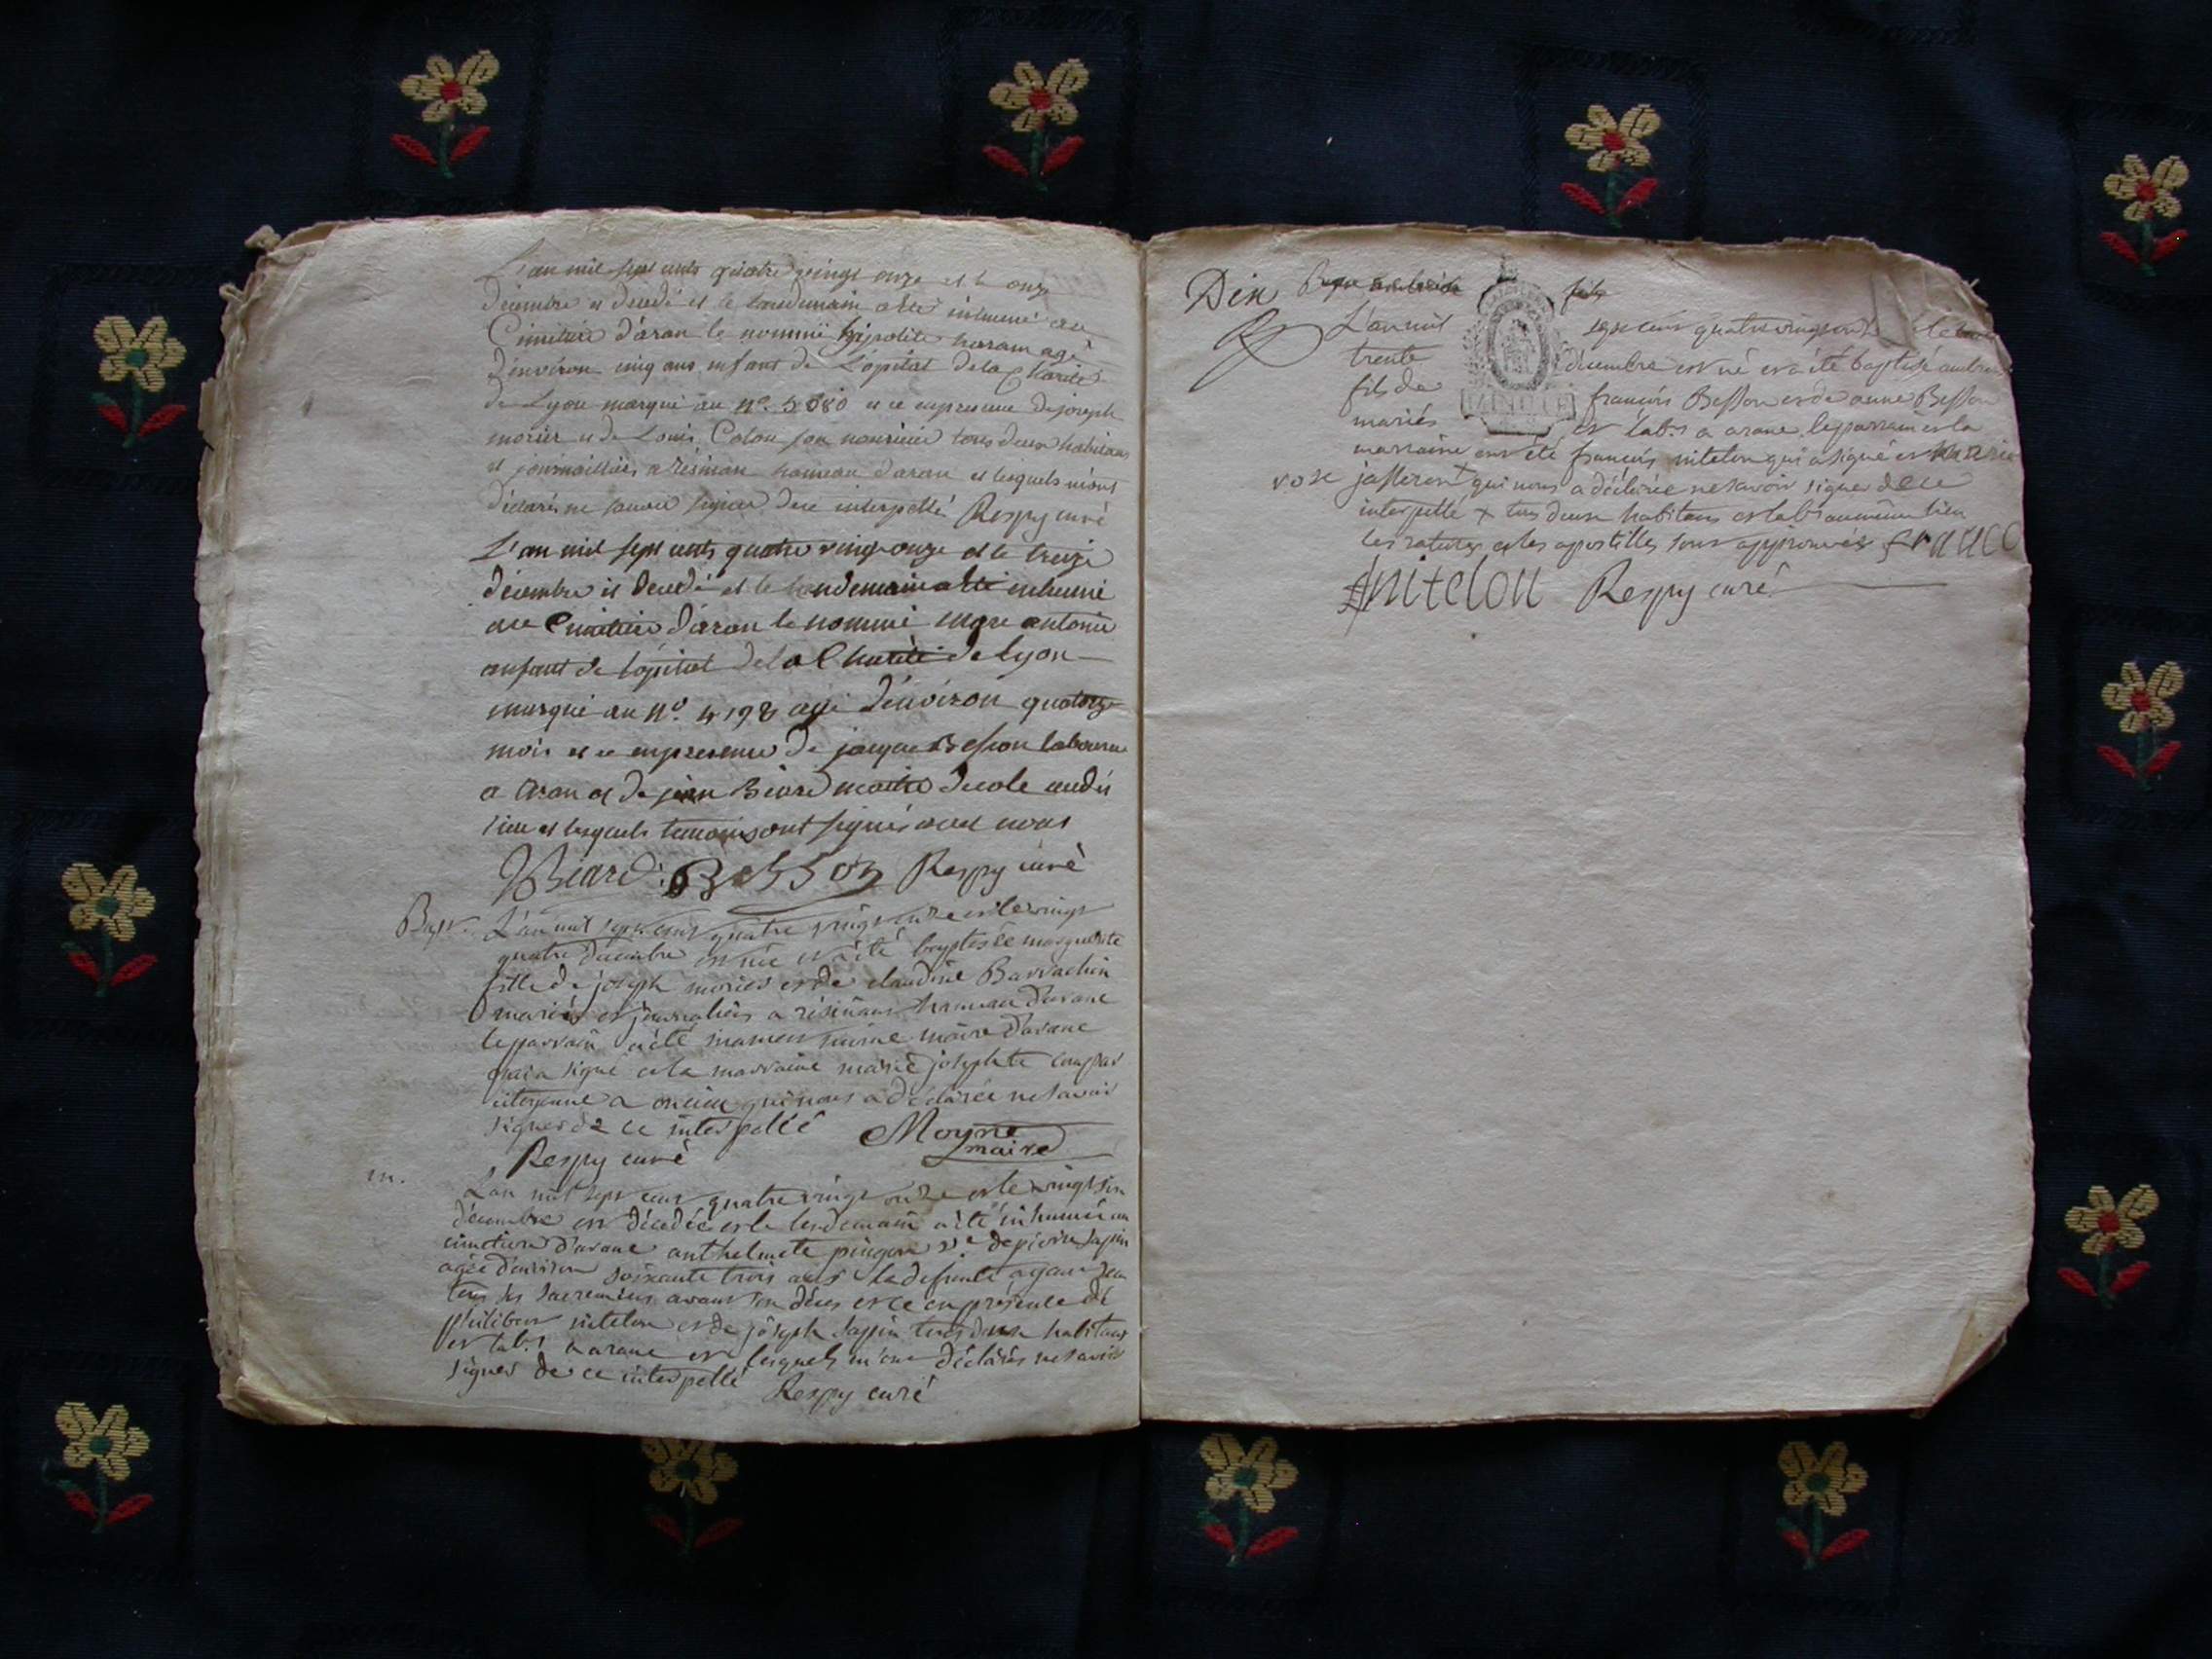 L'an mil sept cents quatre vingt onze et le onze
décembre est decedé et le lendemain a été inhumé au
Cimitiere d'aran le nommé hipolite haram agé
d'environ cinq ans enfant de L'opital de la Charité
de Lyon marqué au n°. 5080 et ce en presence de joseph
morier et de Louis Colon son nourricier tous deux habitans
et journailliers a résinan hameau d'aran et lesquels m'ont
déclaré ne savoir signer de ce interpellé Respy curé
L'an mil sept cents quatre vingt onze et le treize
décembre est decedé et le lendemain a été inhumé
au Cimitiere d'aran le nommé marc antoine
enfant de lopital de la Charité de Lyon
marqué au n°. 4198 agé d'environ quatorze
mois et ce en presence de jacque Besson laboureur
a aran et de jean Béard maitre decole audit
lieu et lesquels temoins ont signés avec nous
Béard : Besson Respy curé
Bapt. L'an mil sept cent quatre vingt onze et le vingt
quatre décembre est née et a été baptisée marguerite
fille de joseph morier et de claudine Barrachin
mariés et journaliers a résinans hameau d'arane
le parrain a été mamert moine maire d'arane
qui a signé et la marraine marie josephte
citoyenne a qui nous a déclarée ne savoir
signer de ce interpellé Moyne
maire
Respy curé
in. L'an mil sept cent quatre vingt onze et le vingt six
décembre est décedée et le lendemain a été inhumée au
cimetiere d'arane anthelmete pingon v.e de pierre sapin
agée d'environ soixante trois ans la defunte ayant reçu
tous les sacremens avant son déces et ce en présence de
philibert nitelon et de joseph sappin tous deux habitans
et lab.rs a arane et lesquels m'ont déclarés ne savoir
signer de ce interpellé Respy curé
Dix
fils
L'an mil sept cent quatre vingt onze et le
trente décembre est né et a été baptisé
fils de françois Besson et de anne Besson
mariés et lab.rs a arane le parrain et la
marraine ont été francois nitelon qui a signé et marie
rose jasseron + qui nous a déclarée ne savoir signer de ce
interpellé + tous deux habitans et lab.rs au même lieu
les ratures et les apostilles sont approuvés franc
nitelon Respy curé